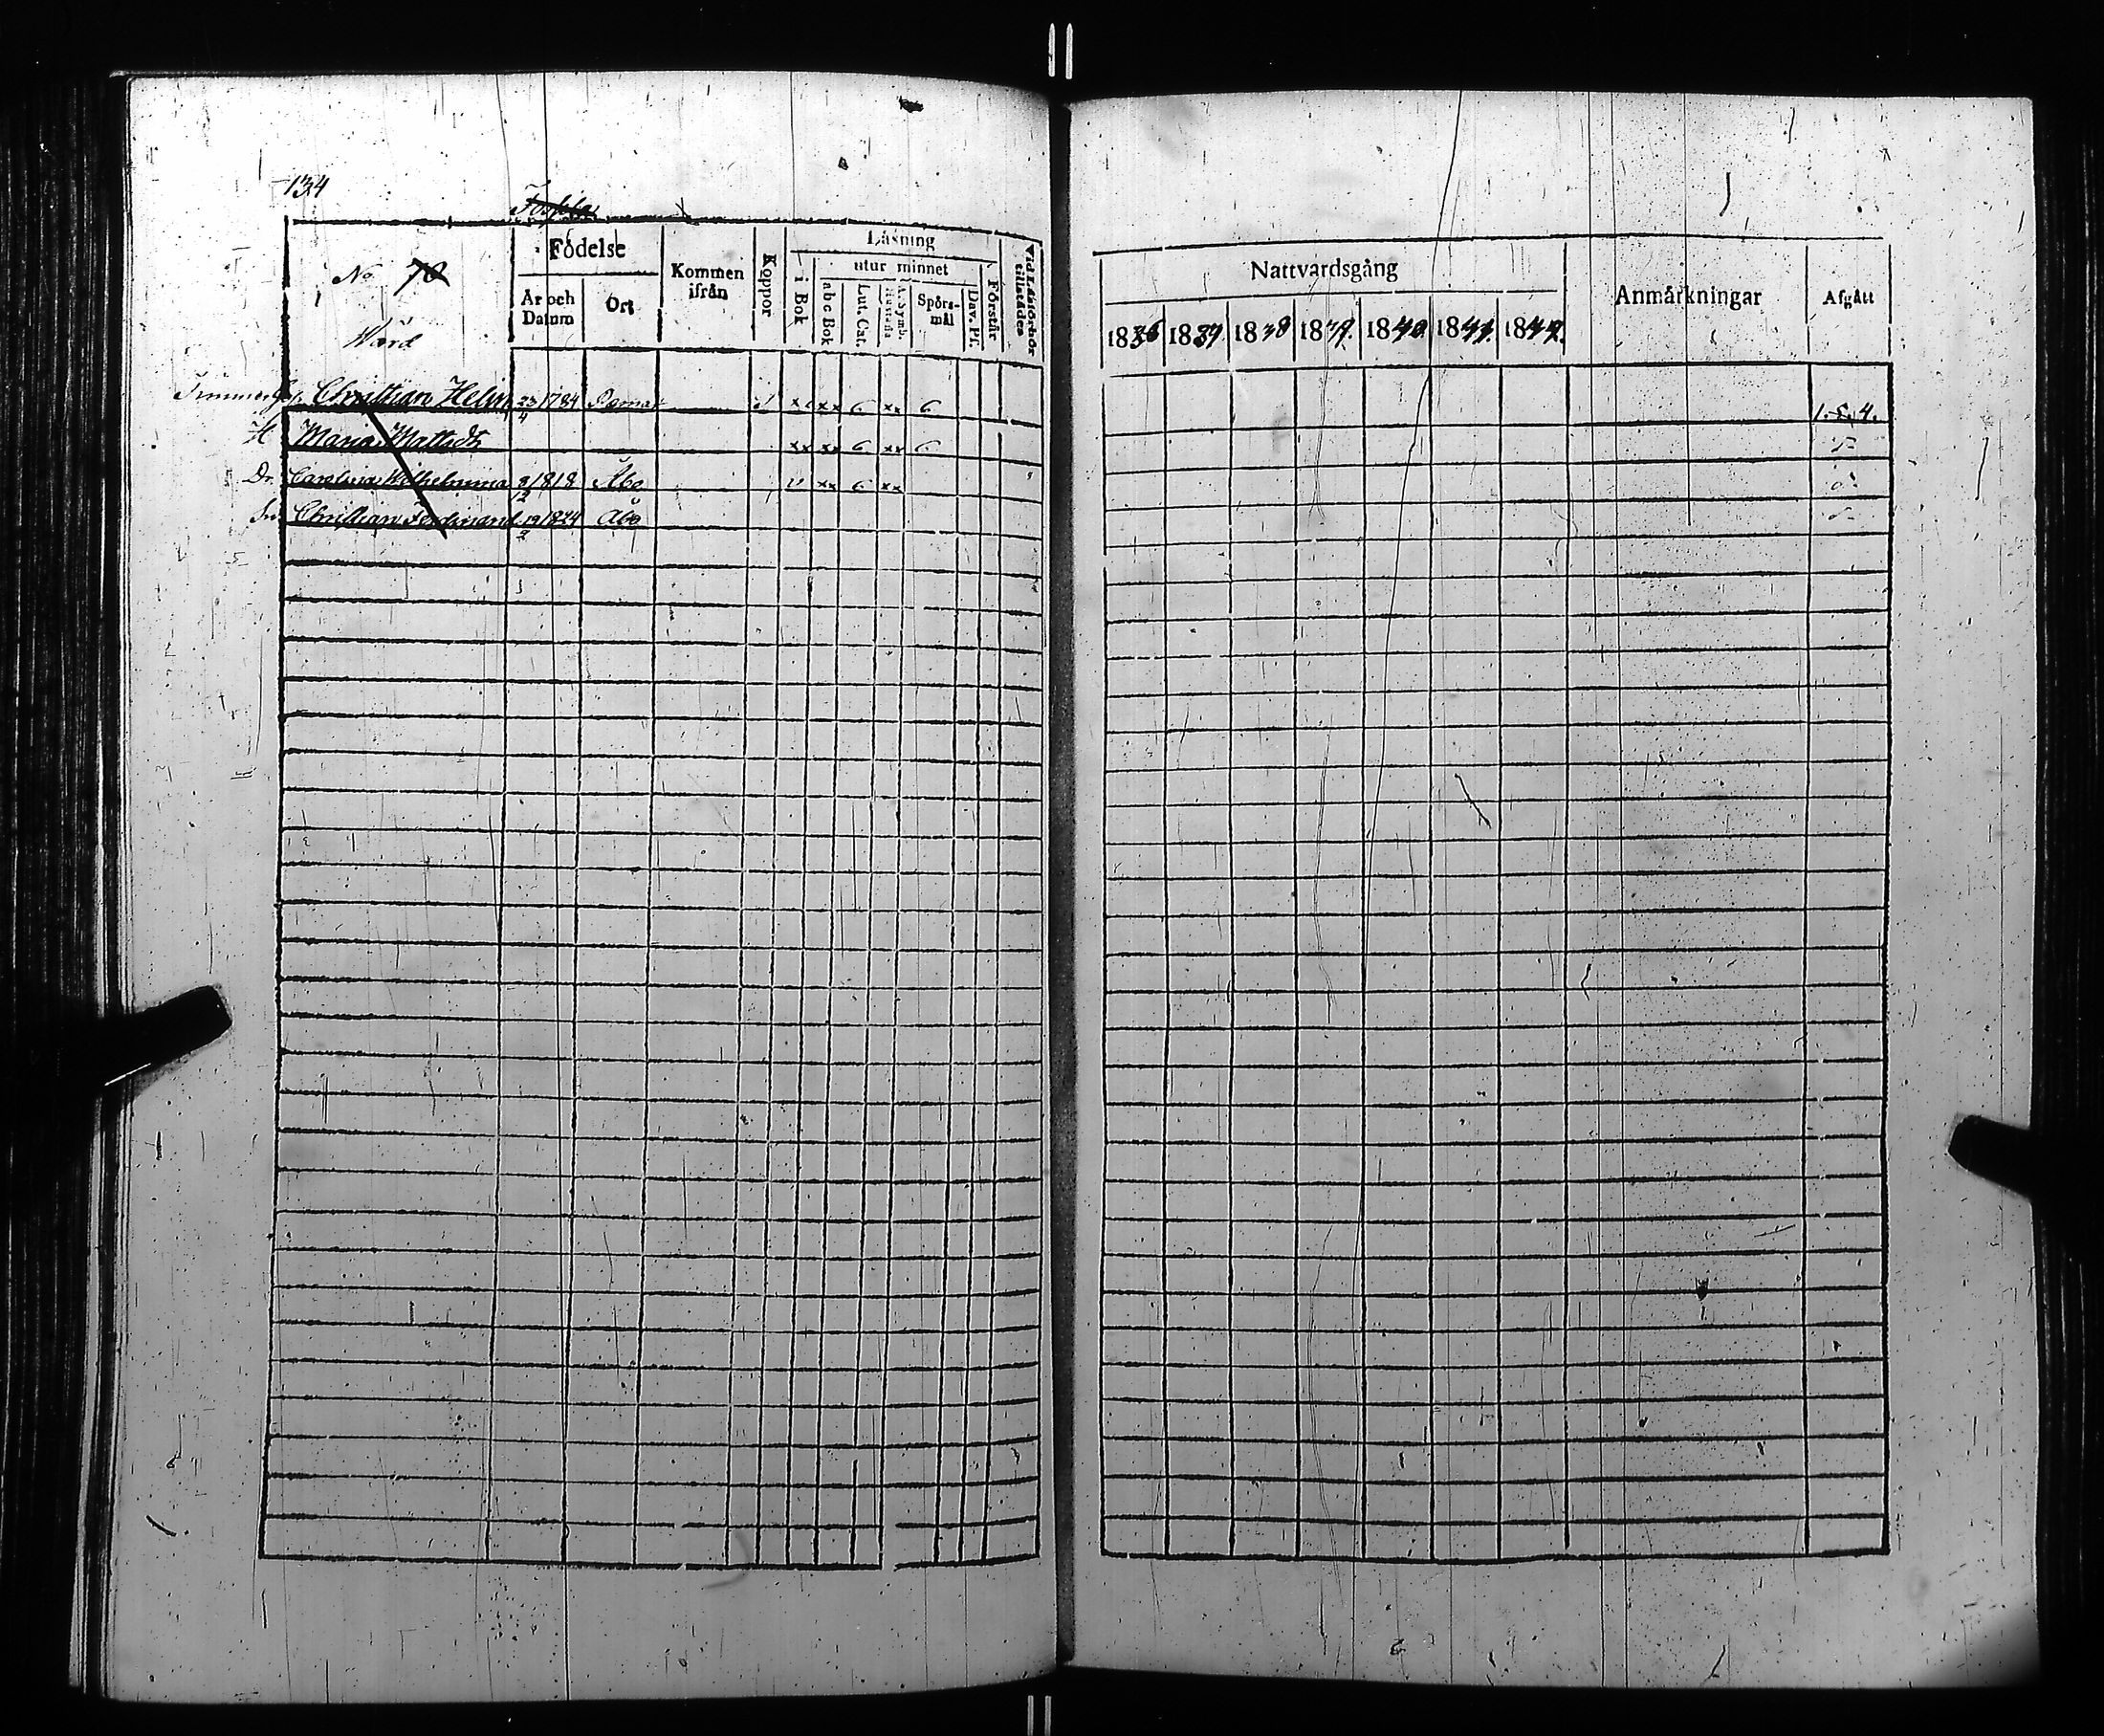 134
No 70
Wård
Födelse
År och Datum
Ort
Kommen ifrån
Koppor
Läsning
i Bok
utur minnet
abc Bok
Lut. Cat.
A. Symb.
Spörs-mål
Dav. Ps.
Förstår
Vid Läsförhör tillstädes
Nattvardsgång
1836 1837 1838 1839. 1840 1841. 1842.
Anmärkningar
Afgått
Christian Helin 23/4 1784 Pemar xx 6 xx 6 1.5.4.
H Maria Mattsdr xx xx 6 xx 6
Dr. Carolina Wilhelmina 8/12 1818 Åbo xx 6 xx
Sn Christian Ferdinand 19/2 1824 Åbo